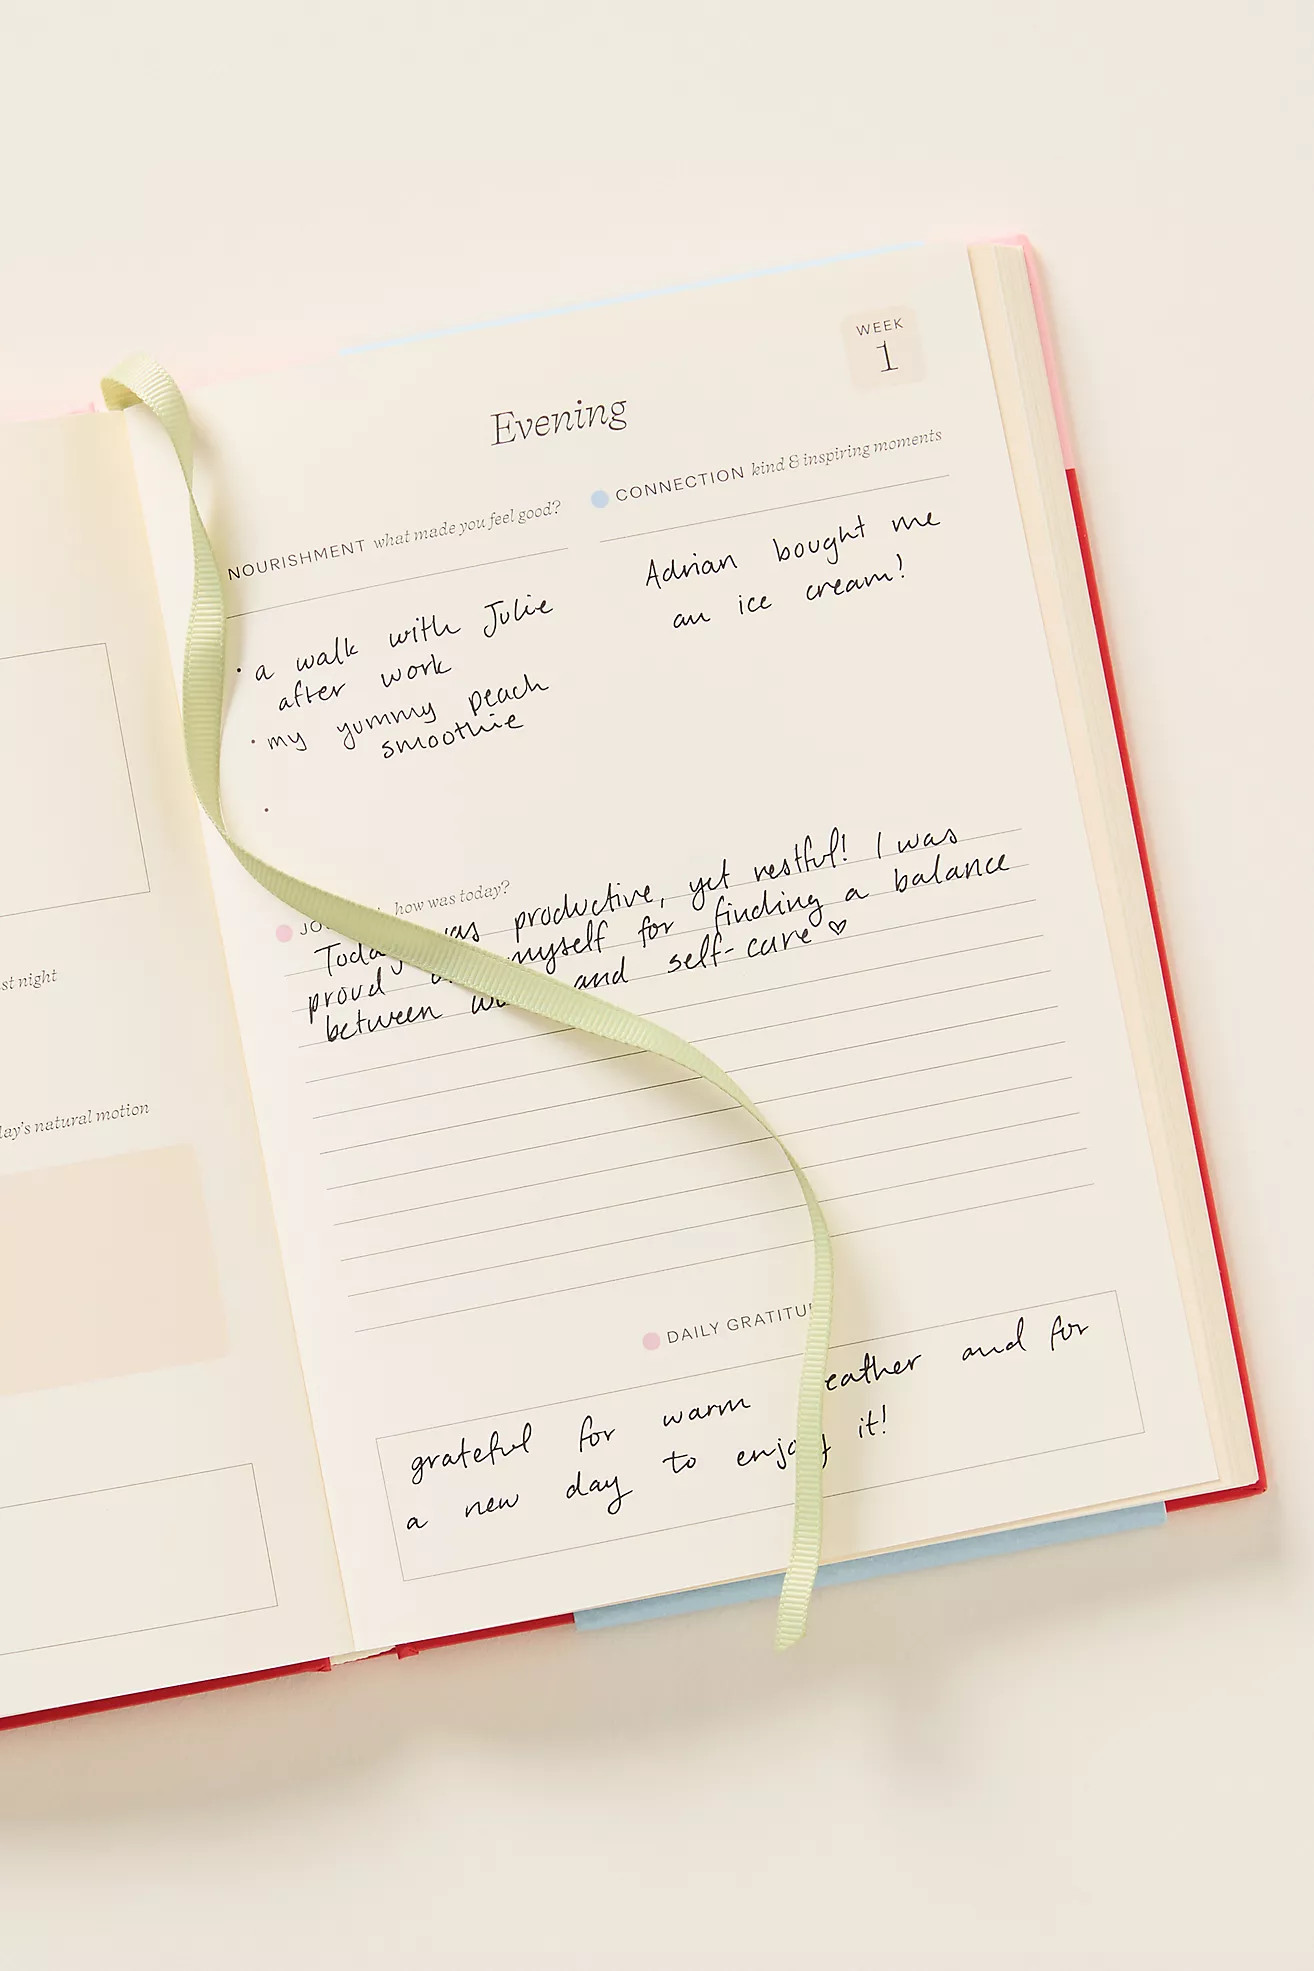 WEEK
1
Evening
NOURISHMENT what made you feel good?
• a walk with Julie
after work
• my yummy peach
smoothie
•
CONNECTION kind & inspiring moments
Adrian bought me
an ice cream!
how was today?
Today was productive, yet restful! I was
proud myself for finding a balance
between and self-care ♡
DAILY
grateful for warm and for
a new day to enjoy it!
st night
natural motion